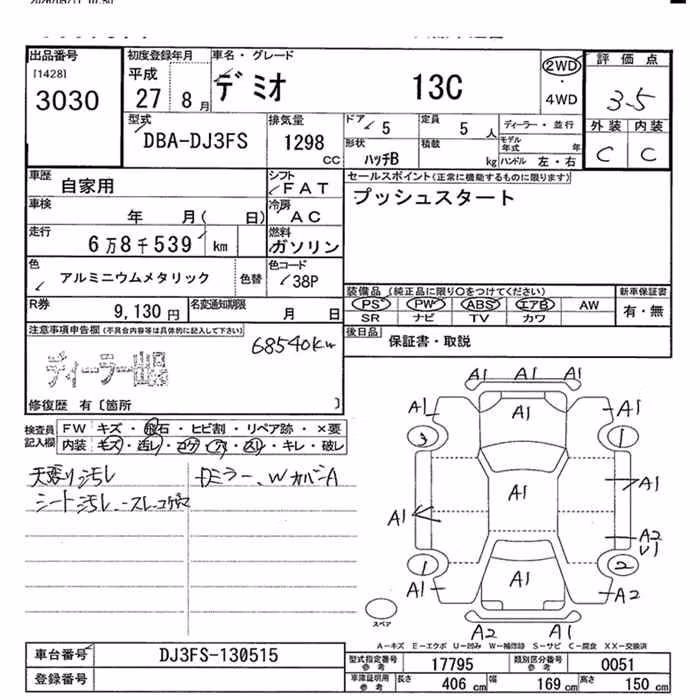 出品番号 初度登録年月 車名・グレード 2WD 評価点
[1428] 平成 デミオ 13C 3.5
3030 27 8月 4WD 外装 内装
型式 排気量 ドア 5 定員 5人 ディーラー・並行 C C
DBA-DJ3FS 1298cc 形状 ハッチB 積載 kg モデル年式 年
ハンドル 左・右
車歴 自家用 シフト FAT セールスポイント(正常に機能するものに限ります)
車検 年 月( 日) 冷房 AC プッシュスタート
走行 6万8千539 km 燃料 ガソリン
色 アルミニウムメタリック 色替 色コード 38P
装備品(純正品に限り○をつけてください) 新車保証書
PS PW ABS エアB AW 有・無
SR ナビ TV カワ
R券 9,130円 名変通知期限 月 日
後日品 保証書・取説
注意事項申告欄(不具合内容等は具体的に記入して下さい) 68540Km
ディーラー出品
修復歴 有〔箇所 〕
検査員記入欄 FW キズ・飛石・ヒビ割・リペア跡・×要
内装 キズ・汚レ・コゲ・穴・スリ・キレ・破レ
天張り汚レ
シート汚レ、スレ、コゲ穴
ミラー、WカバーA
A1 A1 A1
A1 A1 A1
3 1
A1
A1 A1
A2
U1
1 2
A1 A1 A2
A2 A1
スペア
A-キズ E-エクボ U-凹み W-補修跡 S-サビ C-腐食 XX-交換済
車台番号 DJ3FS-130515 型式指定番号 参考 17795 類別区分番号 参考 0051
登録番号 車庫証明用 参考 長さ 406cm 幅 169cm 高さ 150cm